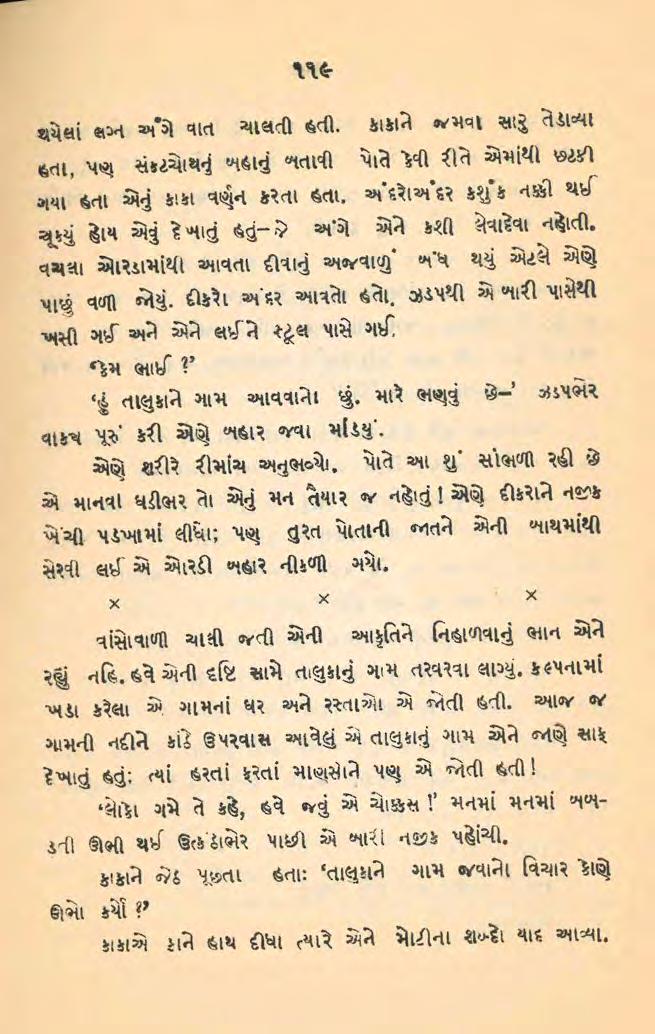 ૧૧૯
થયેલાં લગ્ન અંગે વાત ચાલતી હતી. કાકાને જમવા સારુ તેડાવ્યા
હતા, પણ સંકટચોથનું બહાનું બતાવી પોતે કેવી રીતે એમાંથી છટકી
ગયા હતા એનું કાકા વર્ણન કરતા હતા. અંદરોઅંદર કશુંક નક્કી થઈ
ચૂક્યું હોય એવું દેખાતું હતું– જે અંગે એને કશી લેવાદેવા નહોતી.
વચલા ઓરડામાંથી આવતા દીવાનું અજવાળું બંધ થયું એટલે એણે
પાછું વળી જોયું. દીકરો અંદર આવતો હતો. ઝડપથી એ બારી પાસેથી
ખસી ગઈ અને એને લઈને સ્ટૂલ પાસે ગઈ.
‘કેમ ભાઈ ?’
‘હું તાલુકાને ગામ આવવાનો છું. મારે ભણવું છે–’ ઝડપભેર
વાક્ય પૂરું કરી એણે બહાર જવા માંડયું.
એણે શરીરે રોમાંચ અનુભવ્યો. પોતે આ શું સાંભળી રહી છે
એ માનવા ઘડીભર તો એનું મન તૈયાર જ નહોતું ! એણે દીકરાને નજીક
ખેંચી પડખામાં લીધો; પણ તુરત પોતાની જાતને એની બાથમાંથી
સેરવી લઈ એ ઓરડી બહાર નીકળી ગયો.
× × ×
વાંસોવાળી ચાલી જતી એની આકૃતિને નિહાળવાનું ભાન એને
રહ્યું નહિ. હવે એની દૃષ્ટિ સામે તાલુકાનું ગામ તરવરવા લાગ્યું. કલ્પનામાં
ખડા કરેલા એ ગામનાં ઘર અને રસ્તાઓ એ જોતી હતી. આજ જ
ગામની નદીને કાંઠે ઉપરવાસ આવેલું એ તાલુકાનું ગામ એને જાણે સાફ
દેખાતું હતું; ત્યાં હરતાં ફરતાં માણસોને પણ એ જોતી હતી !
‘લોકો ગમે તે કહે, હવે જવું એ ચોક્કસ !’ મનમાં મનમાં બબ-
ડતી ઊભી થઈ ઉત્કંઠાભેર પાછી એ બારી નજીક પહોંચી.
કાકાને જેઠ પૂછતા હતાઃ ‘તાલુકાને ગામ જવાનો વિચાર કોણે
ઊભો કર્યો ?’
કાકાએ કાને હાથ દીધા ત્યારે એને મોટીના શબ્દો યાદ આવ્યા.